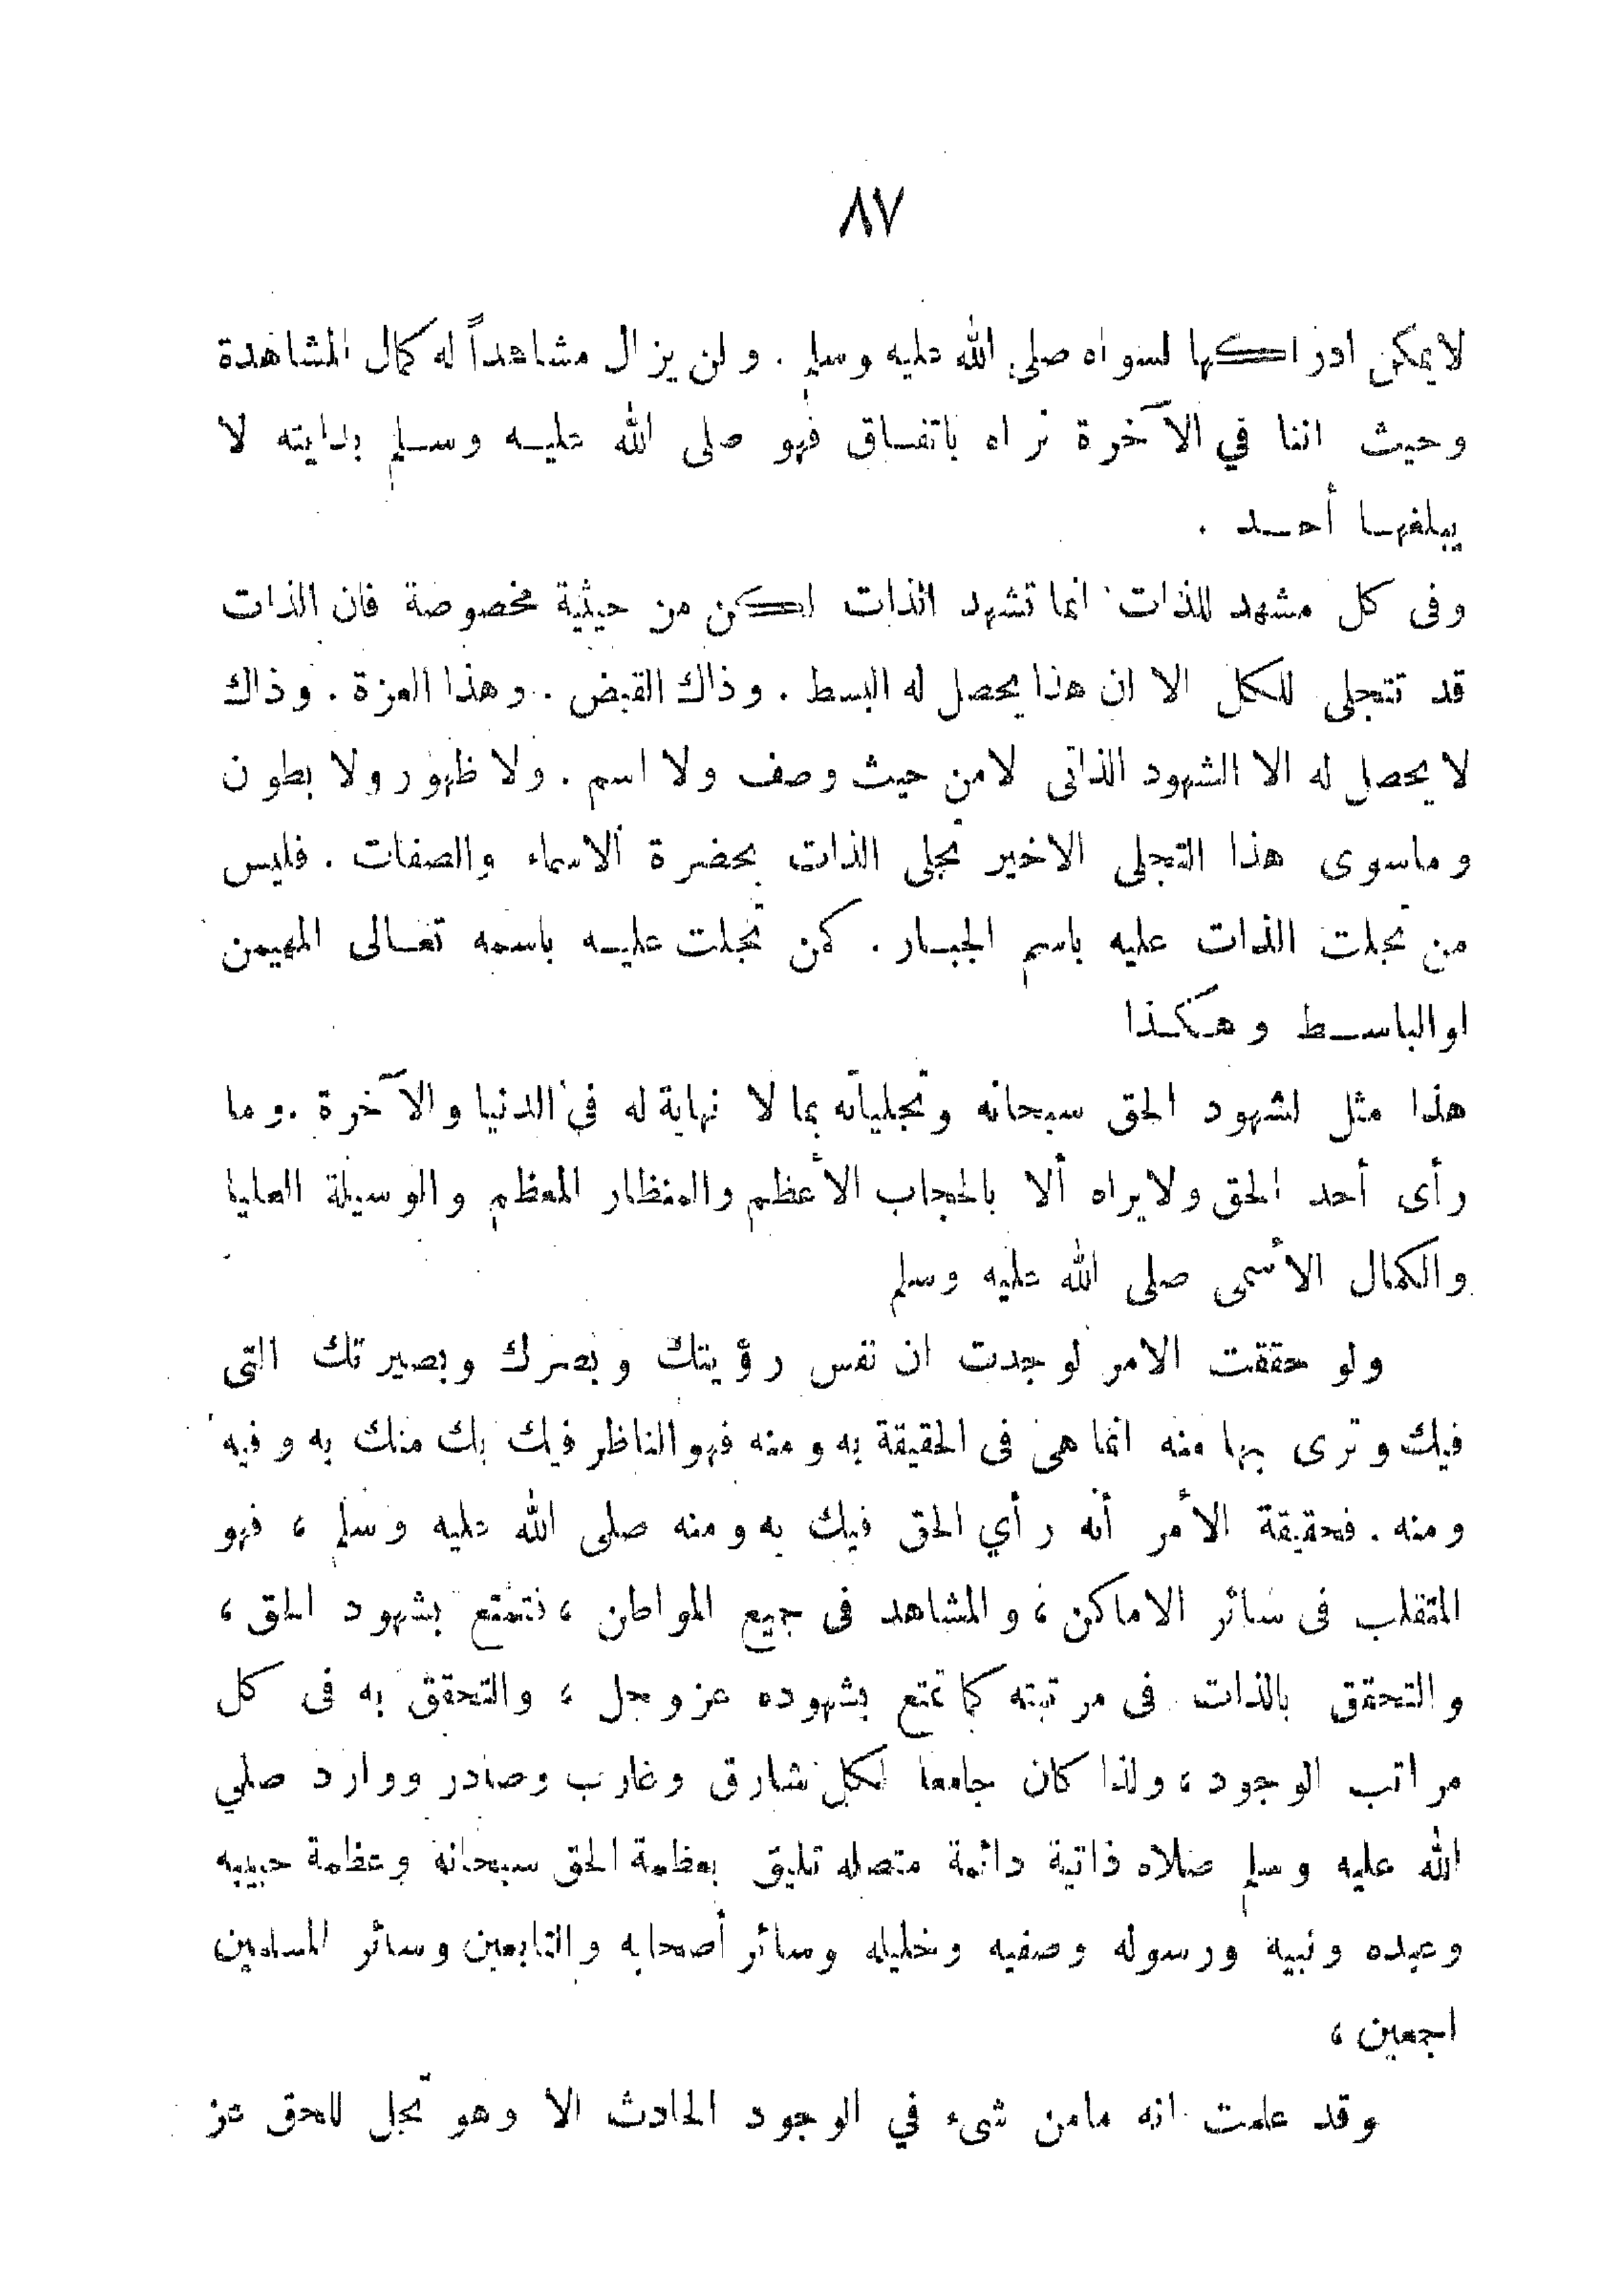 ٨٧
لايمكن ادراكها لسواه صلى الله عليه وسلم . ولن يزال مشاهداً له كمال المشاهدة
وحيث اننا في الآخرة نراه باتفاق فهو صلى الله عليه وسلم بدايته لا
يبلغها أحد .
وفى كل مشهد للذات انما تشهد الذات لكن من حيثية مخصوصة فان الذات
قد تتجلى للكل الا ان هذا يحصل له البسط . وذاك القبض . وهذا العزة . وذاك
لا يحصل له الا الشهود الذاتى لامن حيث وصف ولا اسم . ولا ظهور ولا بطون
وماسوى هذا التجلى الاخير تجلى الذات بحضرة الاسماء والصفات . فليس
من تجلت الذات عليه باسم الجبار . كمن تجلت عليه باسمه تعالى المهيمن
او الباسط وهكذا
هذا مثل لشهود الحق سبحانه وتجلياته بما لا نهاية له في الدنيا والآخرة .وما
رأى أحد الحق ولايراه ألا بالحجاب الأعظم والمنظار المعظم والوسيلة العليا
والكمال الأسمى صلى الله عليه وسلم
ولو حققت الامر لوجدت ان نفس رؤيتك وبصرك وبصيرتك التى
فيك وترى بها منه انما هى فى الحقيقة به ومنه فهو الناظر فيك بك منك به وفيه
ومنه . فحقيقة الأمر أنه رأي الحق فيك به ومنه صلى الله عليه وسلم ، فهو
المتقلب فى سائر الاماكن ، والمشاهد فى جميع المواطن ، نتمتع بشهود الحق ،
والتحقق بالذات فى مرتبته كما تمتع بشهوده عز وجل ، والتحقق به فى كل
مراتب الوجود ، ولذا كان جامعا لكل شارق وغارب وصادر ووارد صلي
الله عليه وسلم صلاه ذاتية دائمة متصله تليق بعظمة الحق سبحانه وعظمة حبيبه
وعبده ونبيه ورسوله وصفيه وخليله وسائر أصحابه والتابعين وسائر المسلمين
اجمعين ،
وقد علمت انه مامن شىء في الوجود الحادث الا وهو تجل للحق عز